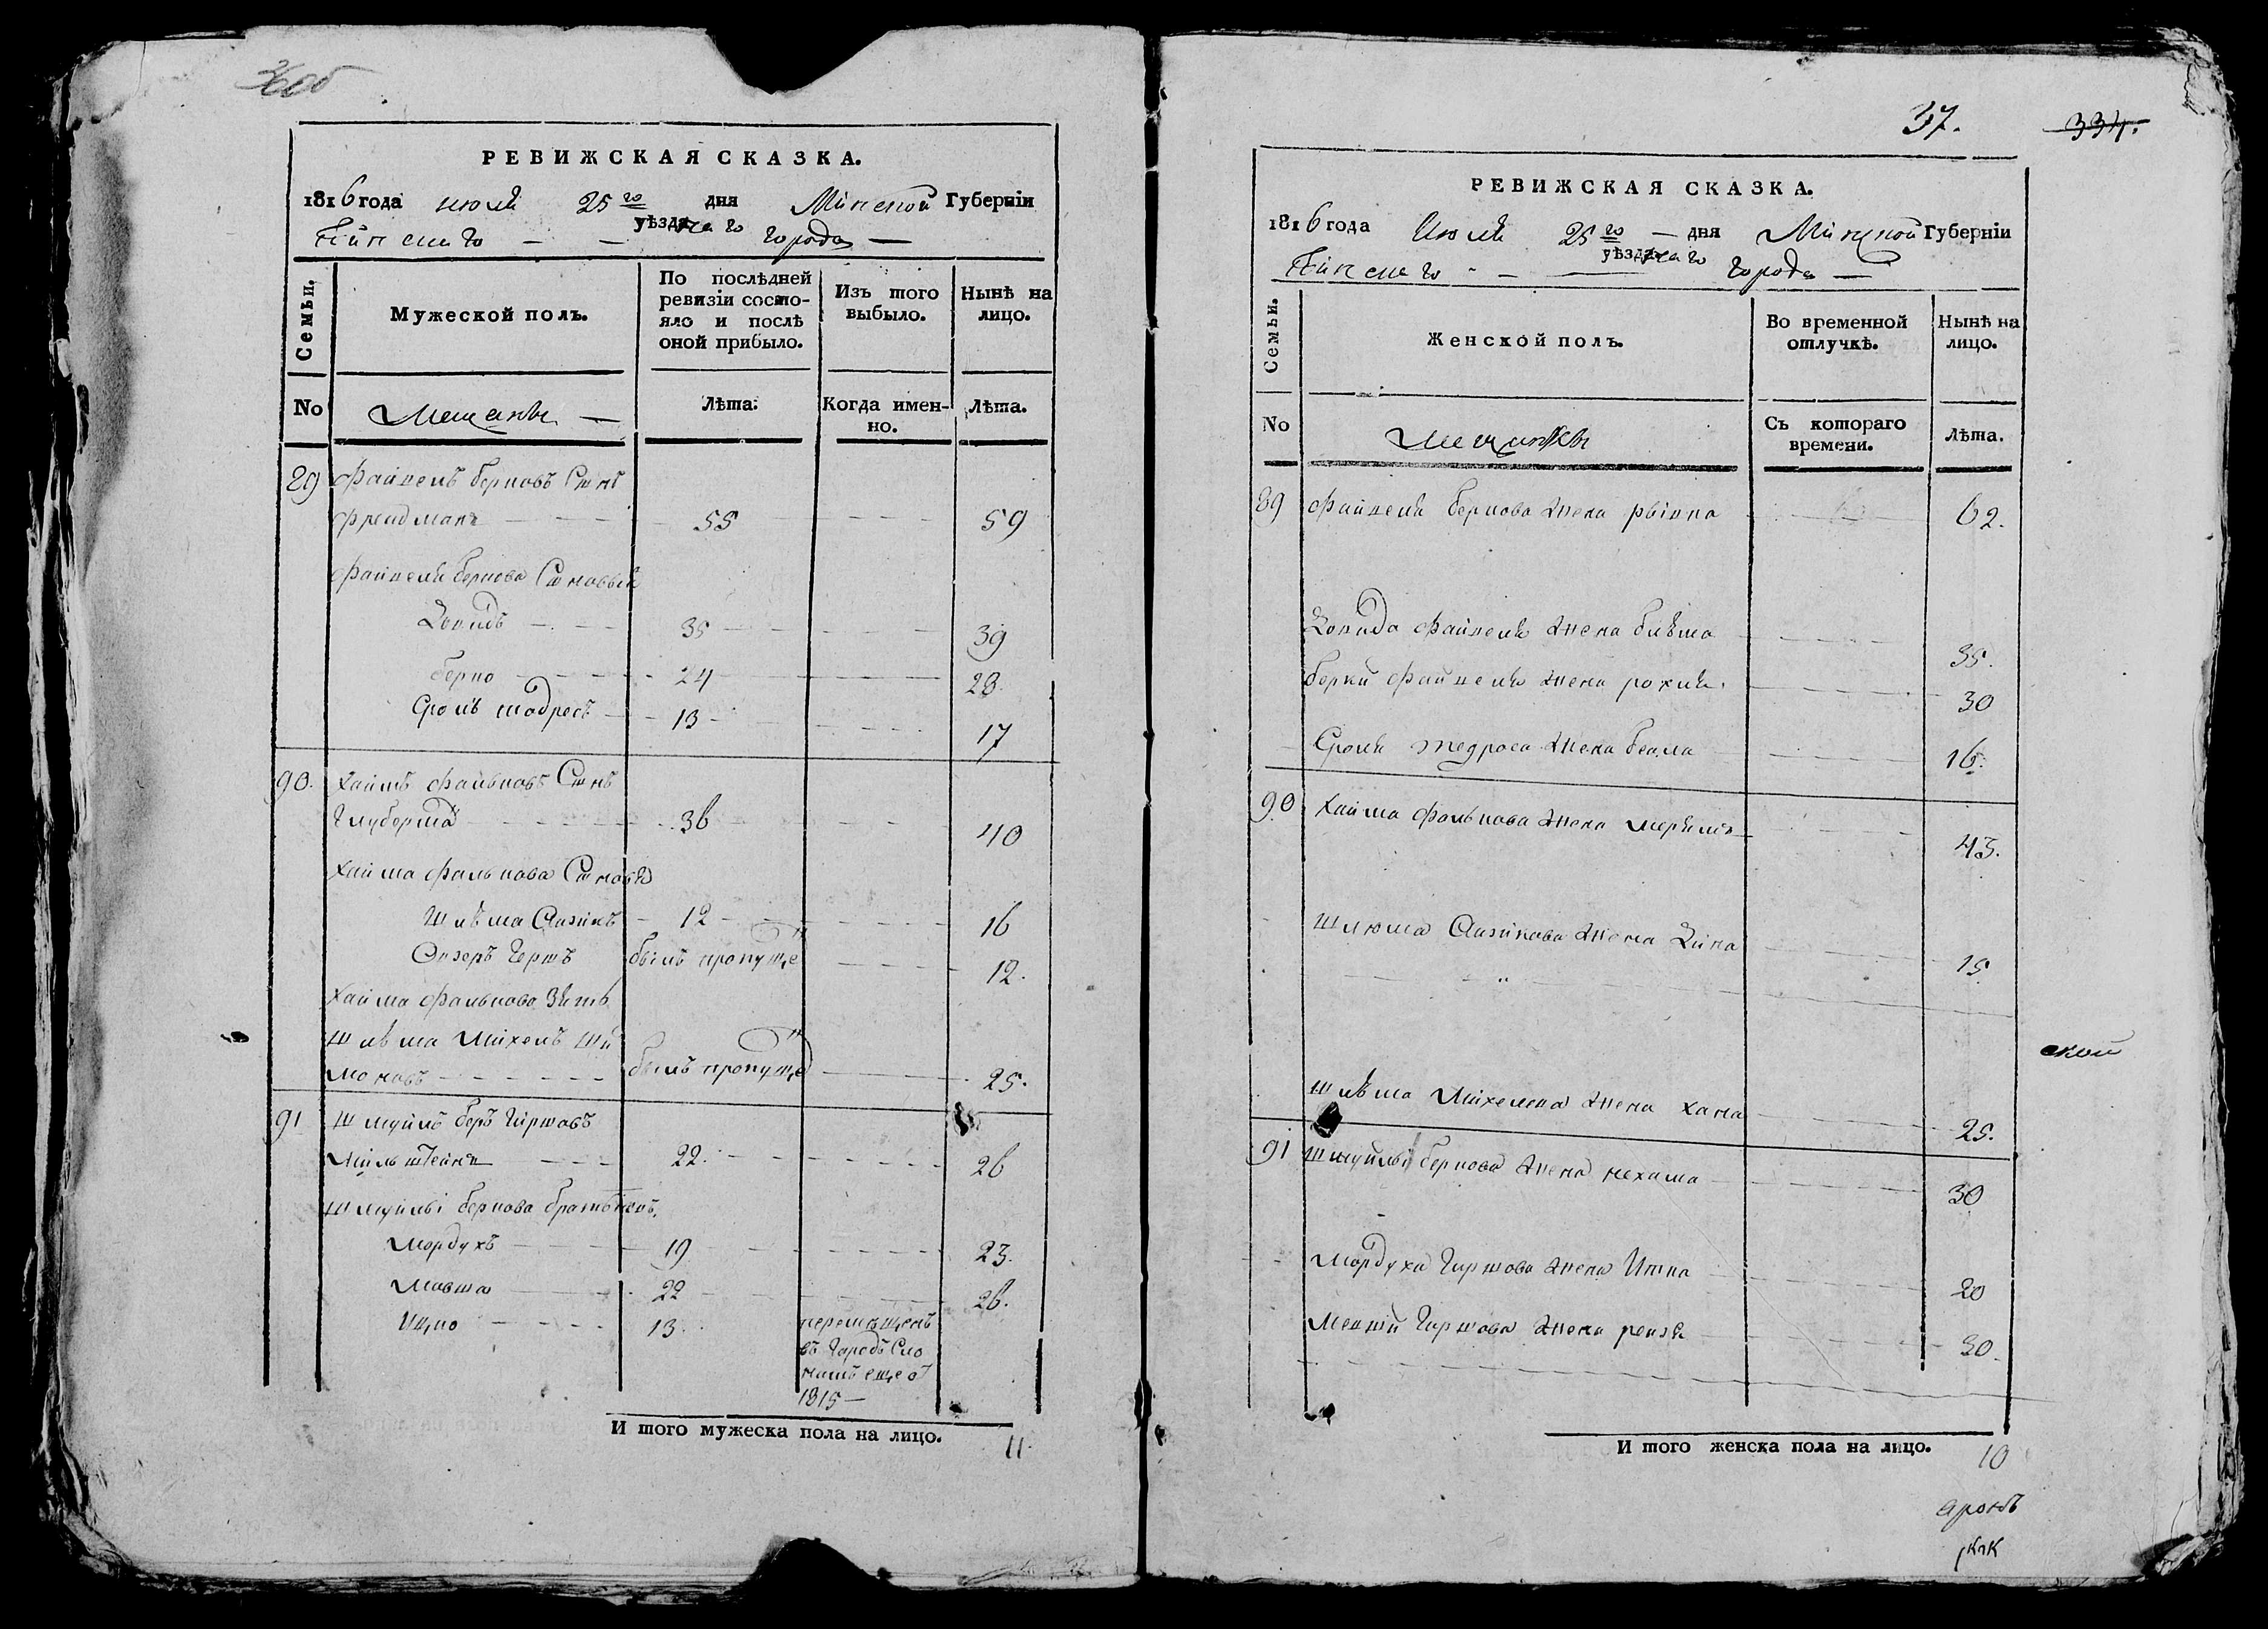 36об
РЕВИЖСКАЯ СКАЗКА.
1816 года июля 25го дня Минской Губерніи
Пинскаго уѣзднаго города
Семьи.
Мужеской полъ.
По послѣдней ревизіи состояло и послѣ оной прибыло.
Изъ того выбыло.
Нынѣ на лицо.
No
Мещане
Лѣта.
Когда именно.
Лѣта.
89 Файвель Берковъ Сынъ
Фреидманъ 55 59
Файвеля Беркова Сыновья
35 39
Берко 24 28
Сроль 13 17
90. Хаимъ Фальковъ Сынъ
36 40
Хаима Фалькова Сыновья
Шлѣма Аизикъ 12 16
былъ пропущенъ 12.
Хаима Фалькова Зять
Шлѣма Михель Ши
моновъ былъ пропущенъ 25.
91 Шмуйль Беръ Гиршовъ
Мильштейнъ 22. 26
Шмуйлы Беркова братья
Мордухъ 19 23.
Мовша 22 26.
Ицко 13. перемѣщенъ
въ городъ Сло
нимъ
1815
И того мужеска пола на лицо. 11.
37. 334.
РЕВИЖСКАЯ СКАЗКА.
1816 года Июля 25го дня Минской Губерніи
Пинскаго уѣзднаго города
Семьи.
Женской полъ.
Во временной отлучкѣ.
Нынѣ на лицо.
No
Мещанки
Съ котораго времени.
Лѣта.
89 Файвеля Беркова жена Ривка 62.
Файвеля жена 35.
Берки Файвеля жена Рохля 30
Сроля жена Бейла 16.
90 Хаима Фалькова жена 43.
Шлюма Аизикова жена 15
Шлѣма Михелева жена Хана 25.
91 Шмуйлы Беркова жена Нехама 30
Мордуха Гиршова жена Итка 20
Гиршова жена 30.
И того женска пола на лицо. 10